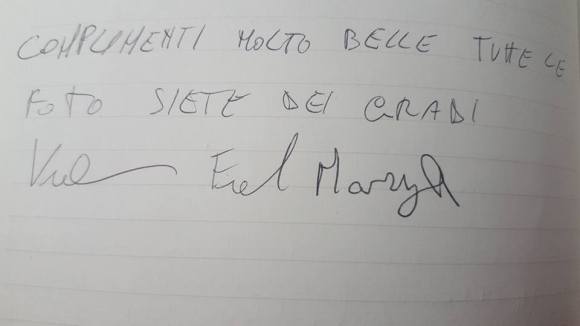 COMPLIMENTI MOLTO BELLE TUTTE LE
FOTO SIETE DEI GRADI